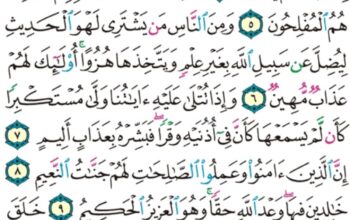 هُمُ ٱلْمُفْلِحُونَ ٥ وَمِنَ ٱلنَّاسِ مَن يَشْتَرِى لَهْوَ ٱلْحَدِيثِ
لِيُضِلَّ عَن سَبِيلِ ٱللَّهِ بِغَيْرِ عِلْمٍ وَيَتَّخِذَهَا هُزُوًا ۚ أُو۟لَـٰٓئِكَ لَهُمْ
عَذَابٌ مُّهِينٌ ٦ وَإِذَا تُتْلَىٰ عَلَيْهِ ءَايَـٰتُنَا وَلَّىٰ مُسْتَكْبِرًا
كَأَن لَّمْ يَسْمَعْهَا كَأَنَّ فِىٓ أُذُنَيْهِ وَقْرًا ۖ فَبَشِّرْهُ بِعَذَابٍ أَلِيمٍ ٧
إِنَّ ٱلَّذِينَ ءَامَنُوا۟ وَعَمِلُوا۟ ٱلصَّـٰلِحَـٰتِ لَهُمْ جَنَّـٰتُ ٱلنَّعِيمِ ٨
خَـٰلِدِينَ فِيهَا ۖ وَعْدَ ٱللَّهِ حَقًّا ۚ وَهُوَ ٱلْعَزِيزُ ٱلْحَكِيمُ ٩ خَلَقَ